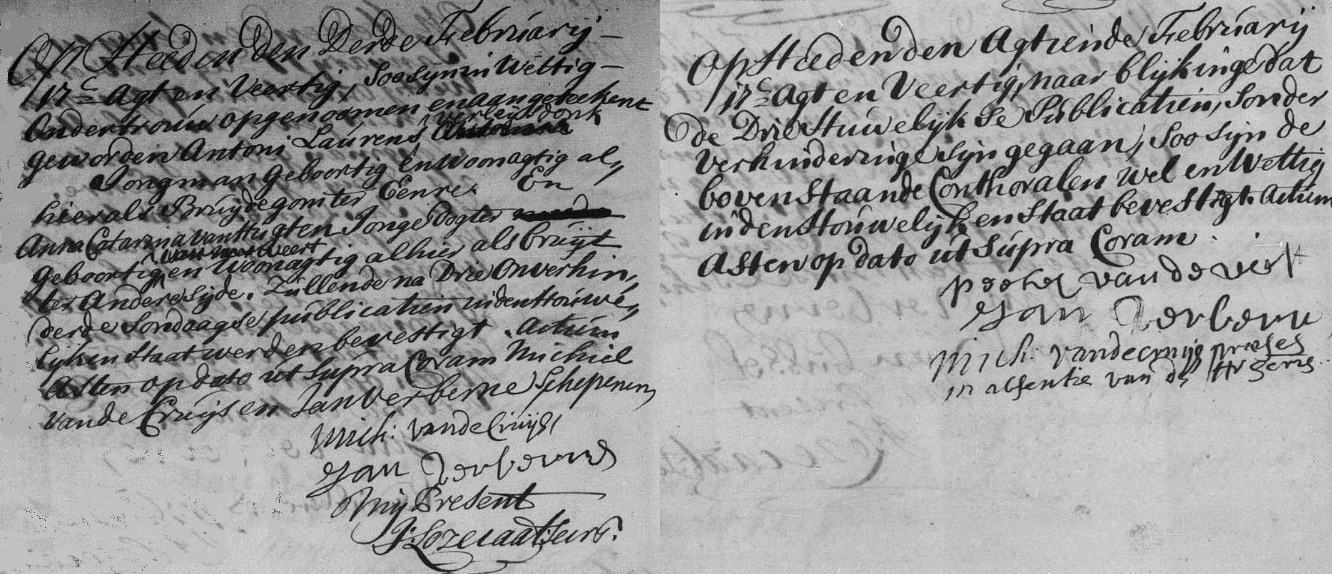 Op Heeden den Derde Februarij
17c Agt en Veertig, Soo syn in Wettig
Ondertrouw opgenoomen en aangeteekent
geworden Antoni Laurens Verleysdonk
Jongman geboortig en woonagtig al,
hier als Bruydegom ter Eenre. En
Anna Catarina van Hugten Jonge dogter
van van weert
geboortig en Woonagtig alhier als bruijt
ter Andere Syde. Zullende na Drie Onverhin,
derde Sondaagse publicatien in den trouwe,
lijken Staat werden bevestigt. Actum
Asten op dato ut Supra Coram Michiel
van de Cruijs en Jan Verberne Schepenen
Mich: vande Cruijs
Jan Verberne
Mij Present
J: Lozecaat Secrs.
Op Heeden den Agtiende February
17c Agt en Veertig, naar blijkinge dat
de Drie Huwelijkse Publicatien, Sonder
verhinderinge syn gegaan, Soo syn de
bovenstaande Conthoralen wel en Wettig
in den Houwelijken Staat bevestigt. Actum
Asten op dato ut Supra Coram
peeter van de vorst
Jan Verberne
Mich: vande cruijs preses
in absentie van de Hr